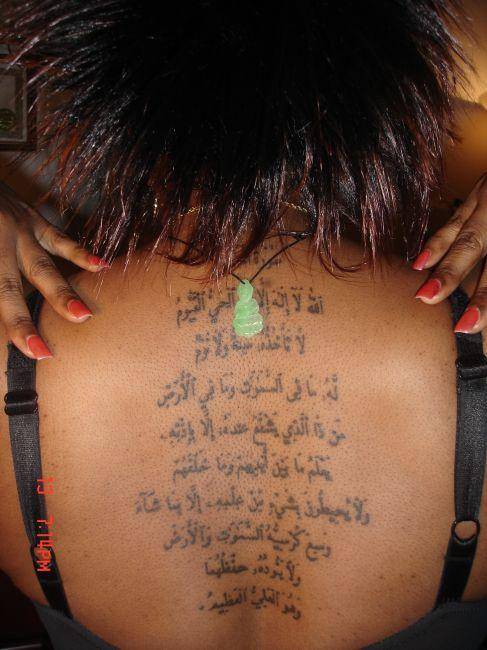 الله لَا إِلَهَ إِلَّا الْحَيُّ الْقَيُّومُ
لَا تَأْخُذُهُ سِنَةٌ وَلَا نَوْمٌ
لَهُ مَا فِي السَّمَوَاتِ وَمَا فِي الْأَرْضِ
مَنْ ذَا الَّذِي يَشْفَعُ عِنْدَهُ إِلَّا بِإِذْنِهِ.
يَعْلَمُ مَا بَيْنَ أَيْدِيهِمْ وَمَا خَلْفَهُمْ
وَلَا يُحِيطُونَ بِشَيْءٍ مِّنْ عِلْمِهِ إِلَّا بِمَا شَآءَ
وَسِعَ كُرْسِيُّهُ السَّمَوَاتِ وَالْأَرْضَ
وَلَا يَئُودُهُ حِفْظُهُمَا
وَهُوَ الْعَلِيُّ الْعَظِيمُ.
7:14PM